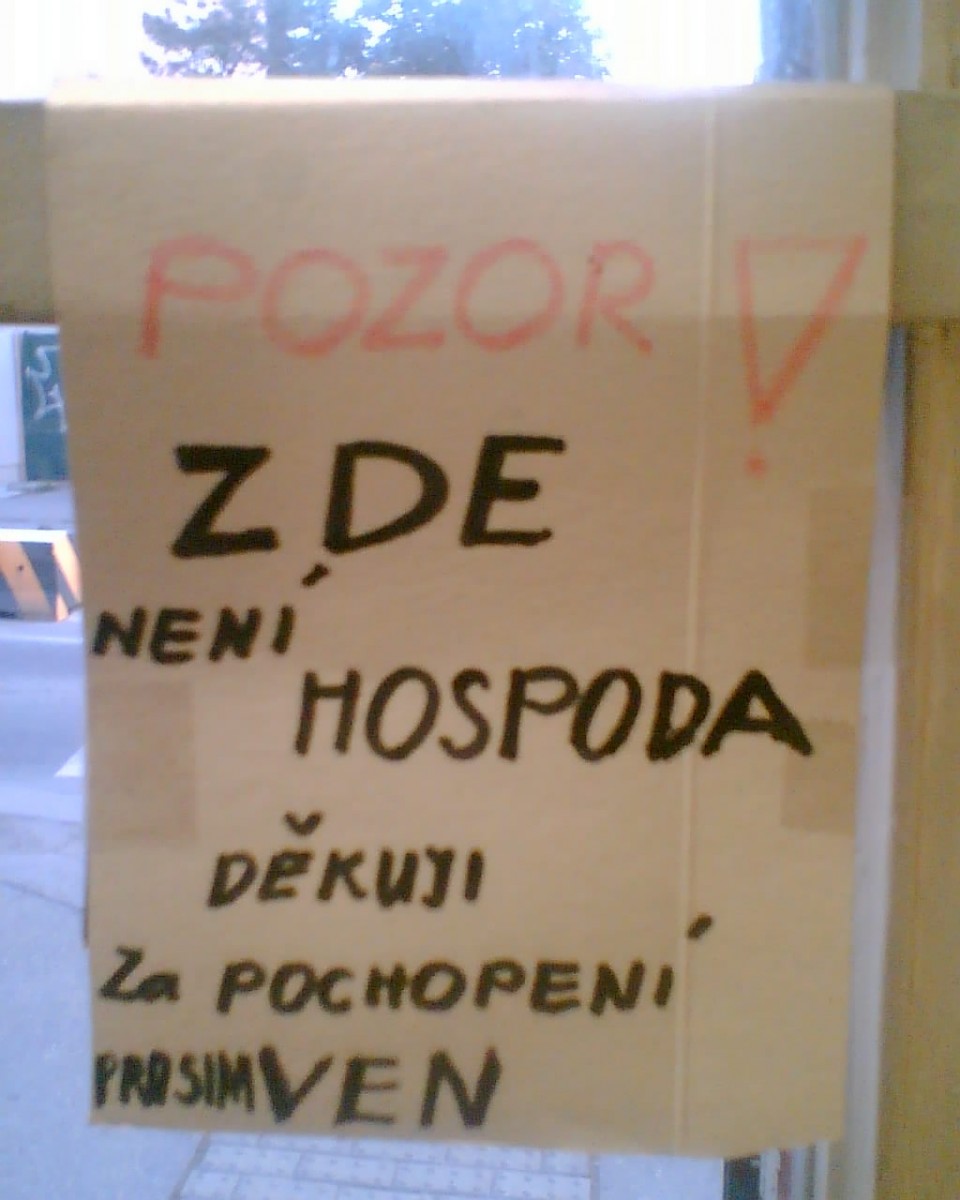 POZOR!
ZDE
NENÍ
HOSPODA
DĚKUJI
Za POCHOPENÍ
PROSIM VEN